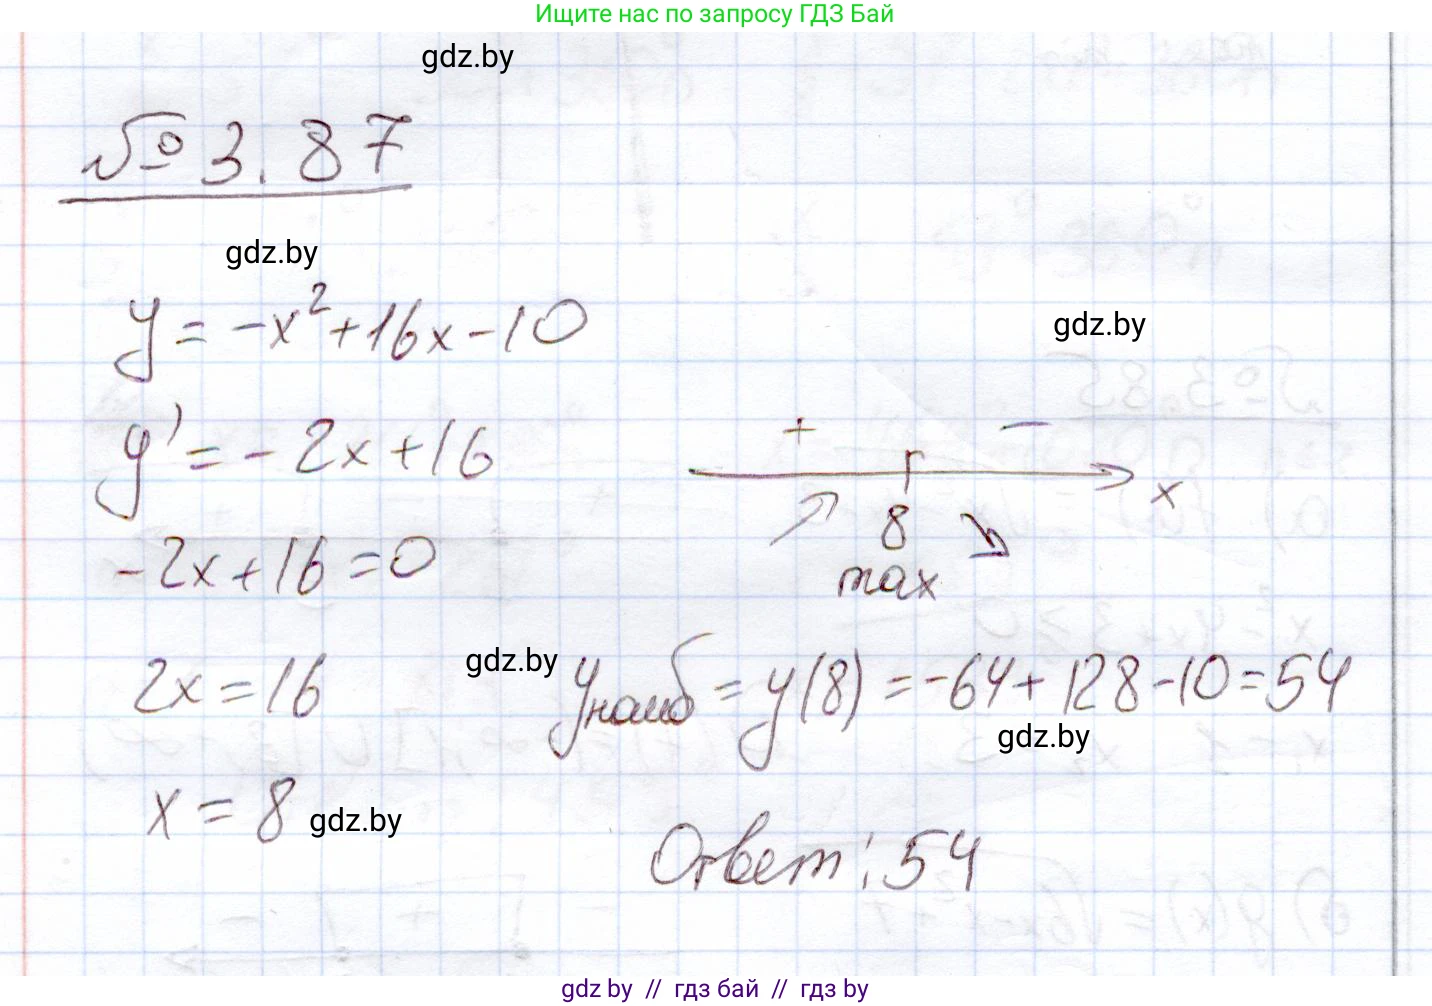 Ищите нас по запросу ГДЗ Бай
gdz.by
№ 3.87
gdz.by
y = -x² + 16x - 10
gdz.by
y' = -2x + 16
+ −
x
8
max
-2x + 16 = 0
2x = 16
gdz.by
yнаиб = y(8) = -64 + 128 - 10 = 54
gdz.by
x = 8
gdz.by
Ответ: 54
gdz.by // гдз бай // гдз by